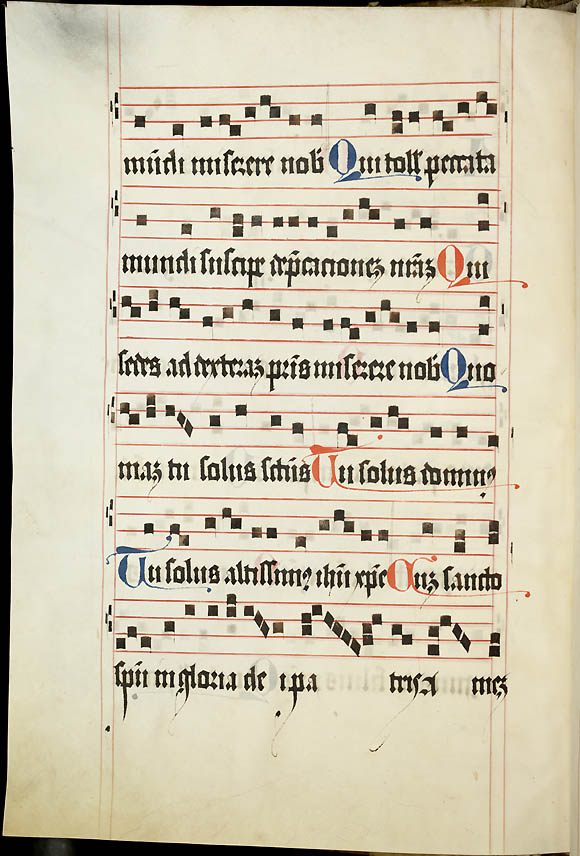 mūdi miserere nob̄ Qui toll' peccata
mundi suscipe dep̄cacionez nr̄az Qui
sedes ad dexteraz pr̄is miserere nob̄ Quo
niaz tu solus sc̄tus Tu solus dominꝰ
Tu solus altissimꝰ ihū xp̄e Cuz sancto
sp̄u in gloria de i pa tris A mez